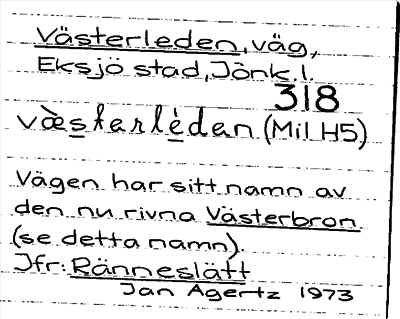 Västerleden, väg,
Eksjö stad, Jönk. l.
318
væ̀sterlèdan (Mil H5)
Vägen har sitt namn av
den nu rivna Västerbron
(se detta namn).
Jfr: Ränneslätt
Jan Agertz 1973